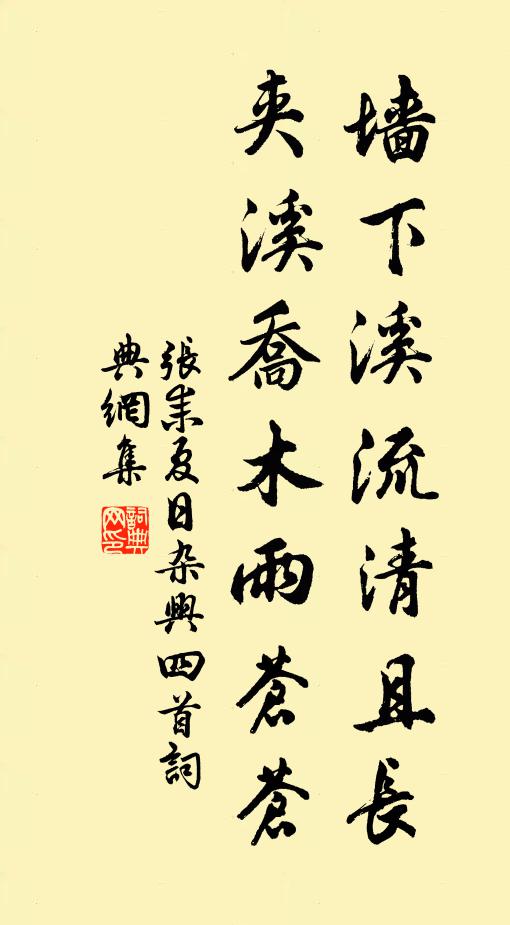 墙下溪流清且長
夾溪喬木雨蒼蒼
張耒夏日杂興四首詞
典網集
詞典网印